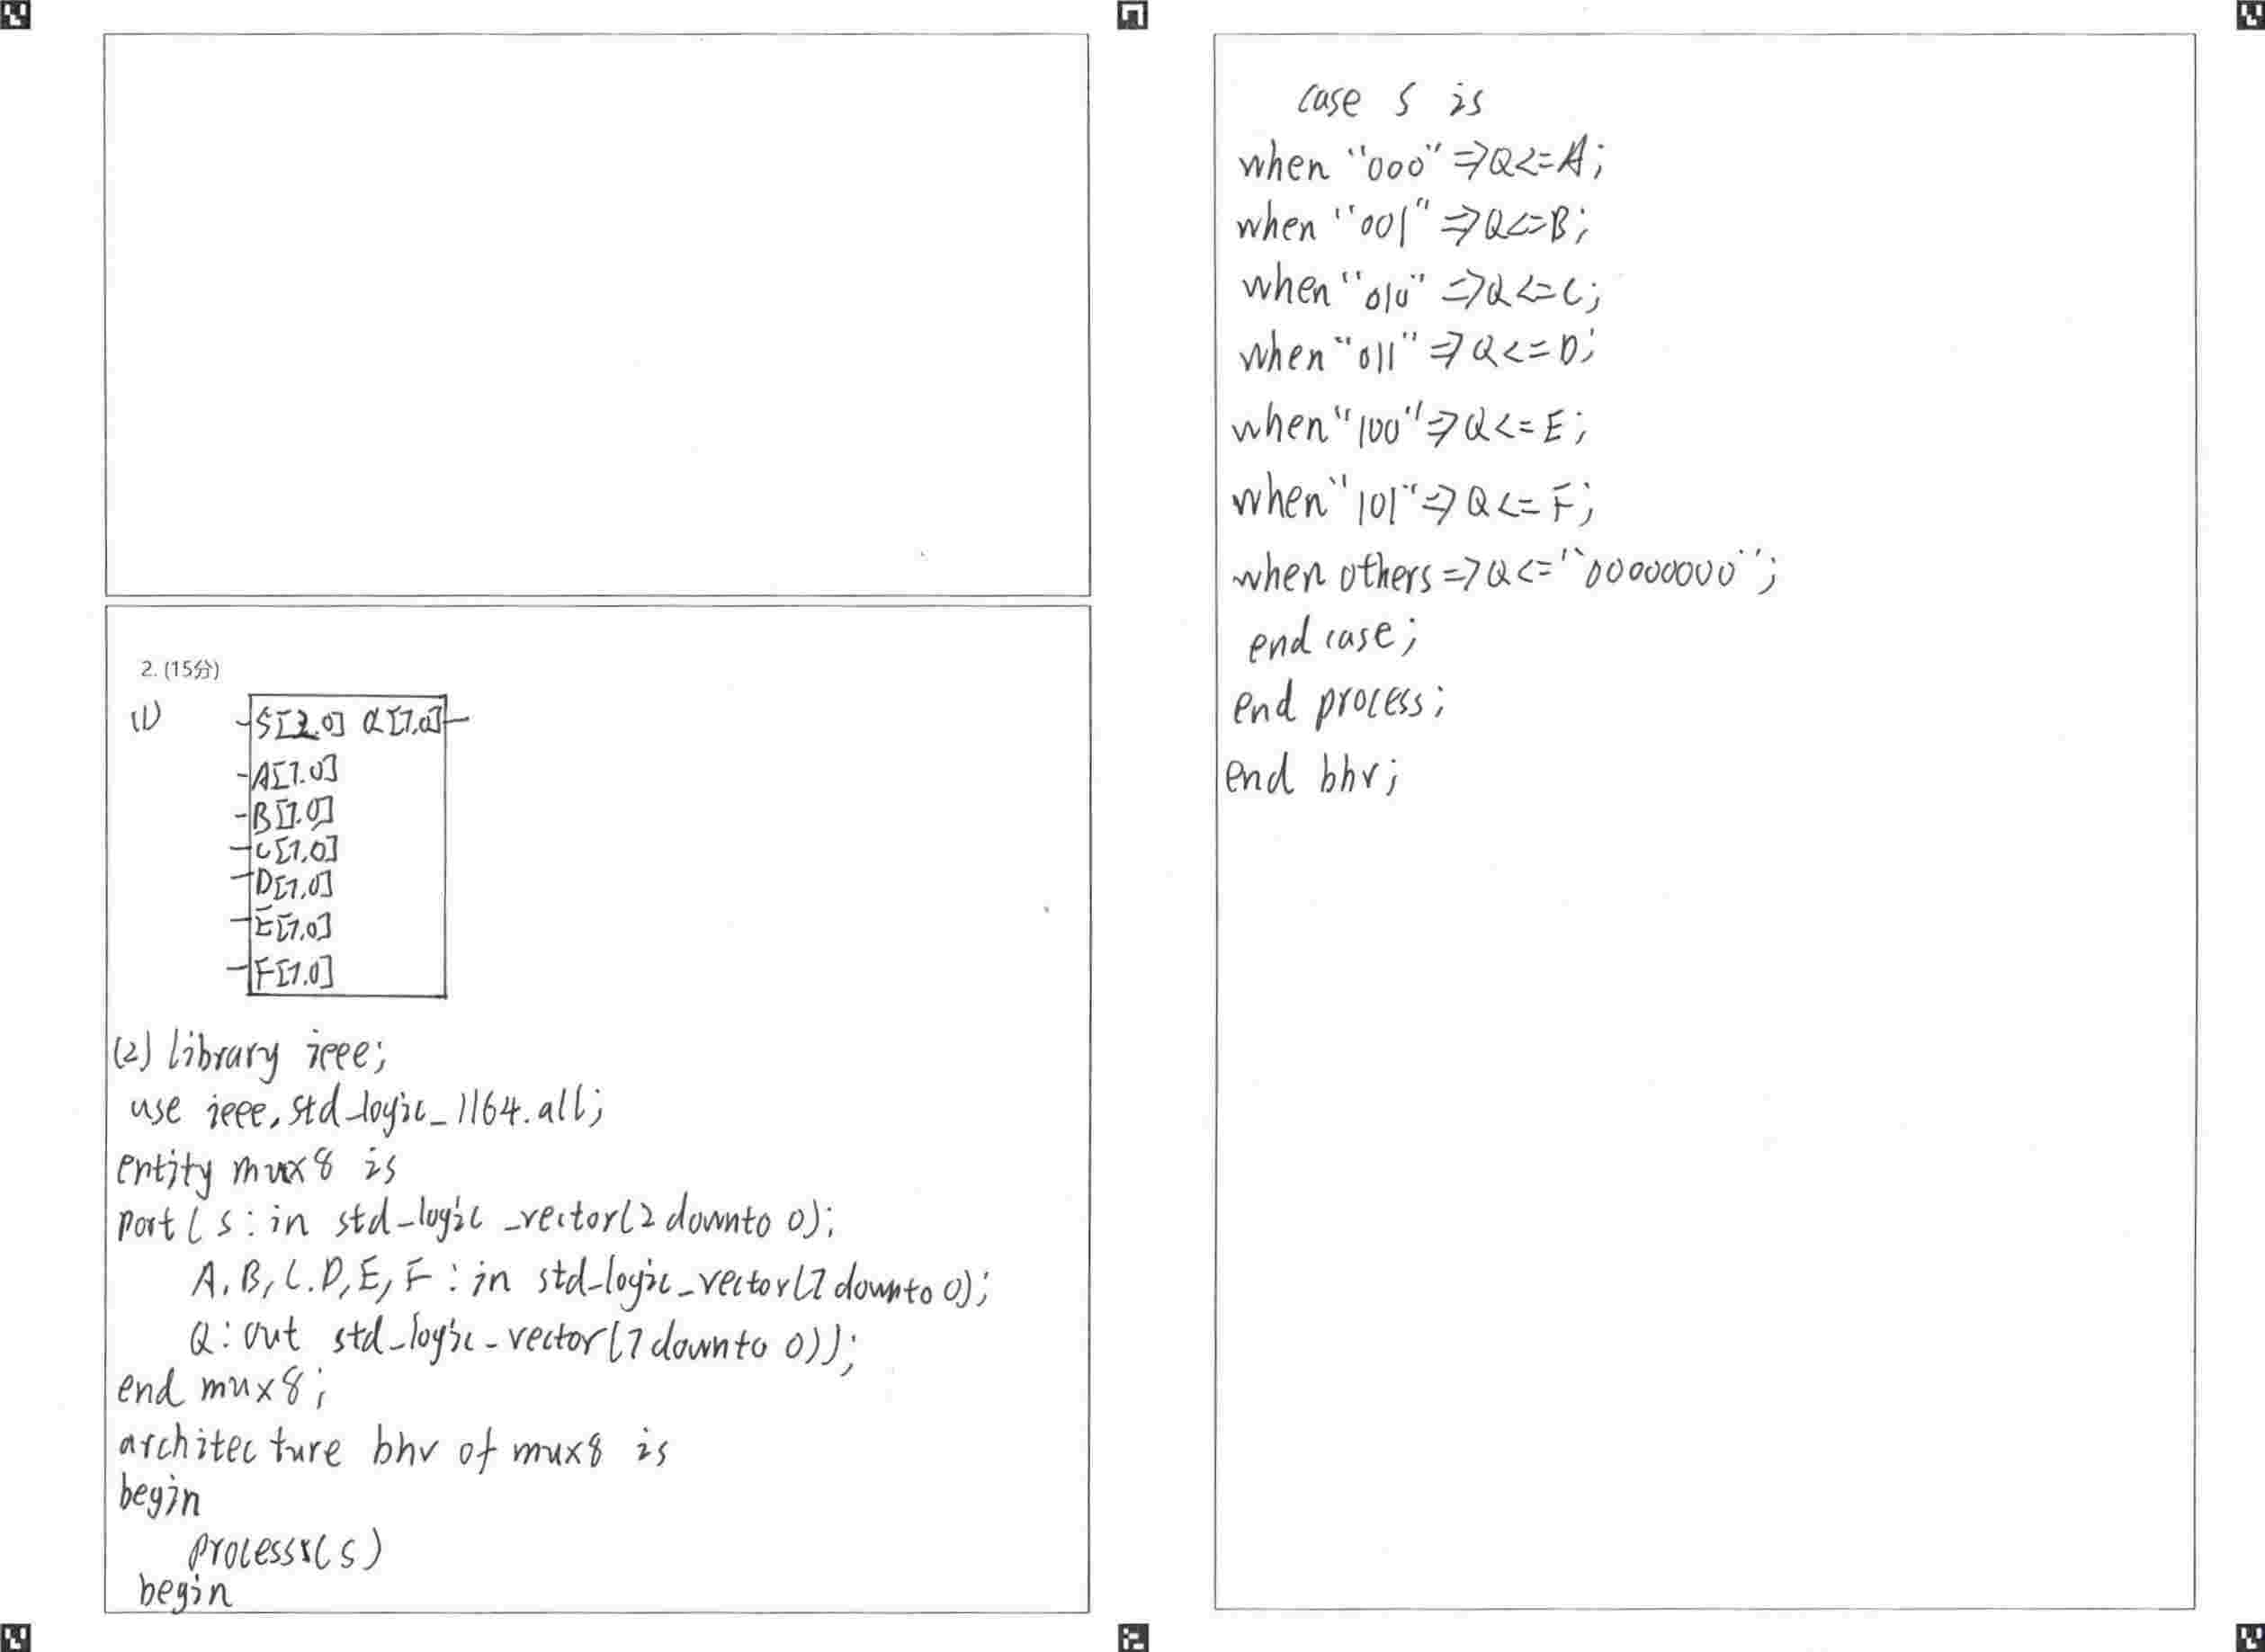 2. (15分)
(1)
S[2.0] Q[7.0]
A[7.0]
B[7.0]
C[7.0]
D[7.0]
E[7.0]
F[7.0]
(2) library ieee;
use ieee.std_logic_1164.all;
entity mux8 is
port(s:in std_logic_vector(2 downto 0);
A,B,C,D,E,F:in std_logic_vector(7 downto 0);
Q:out std_logic_vector(7 downto 0));
end mux8;
architecture bhv of mux8 is
begin
process(s)
begin
case s is
when "000"=>Q<=A;
when "001"=>Q<=B;
when "010"=>Q<=C;
when "011"=>Q<=D;
when "100"=>Q<=E;
when "101"=>Q<=F;
when others=>Q<="00000000";
end case;
end process;
end bhv;